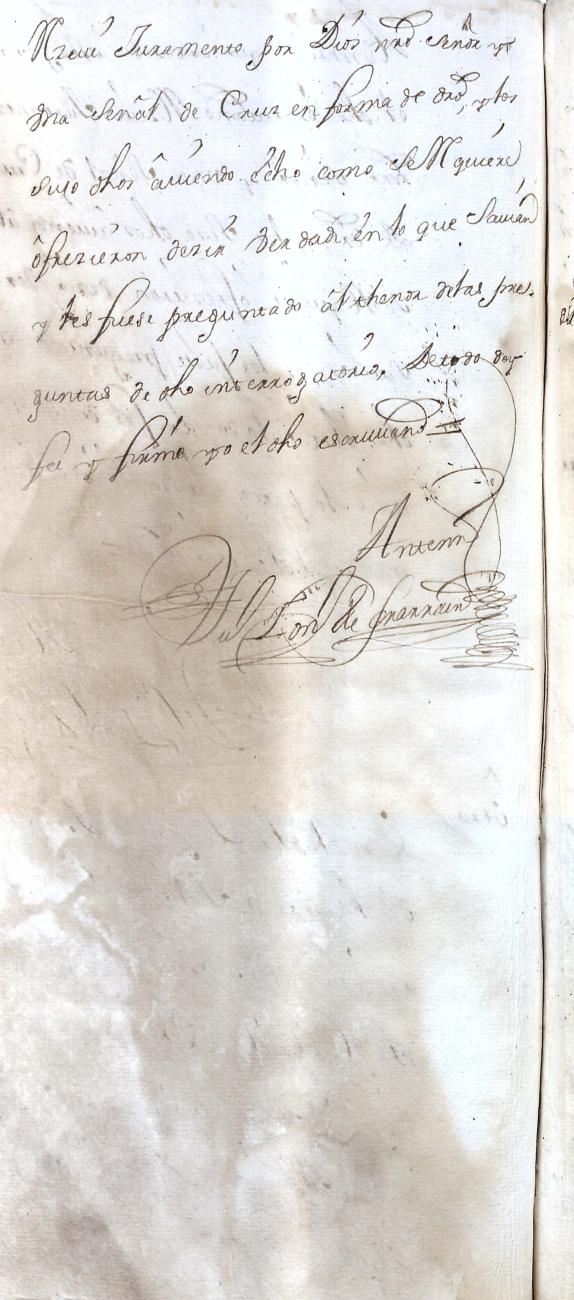 Rreciui Juramento por Dios nro Señor y
vna señal de Cruz en forma de dro, y los
suso dhos auiendo echo como se Rquiere,
ofrezieron dezir verdad en lo que sauian
y les fuese preguntado al thenor de las pre-
guntas de dho interrogatorio, De todo doy
fee y firme yo el dho escriuano
Antemi
de